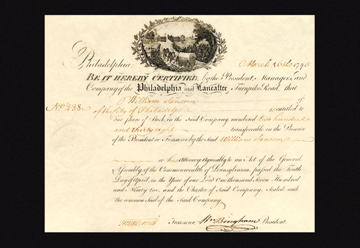 Philadelphia March 26th 1795
BE IT HEREBY CERTIFIED, by the President, Managers and
Company of the Philadelphia and Lancaster Turnpike Road, that
William Sansom
No. 238 of the City of Philadelphia is entitled to
One share of Stock, in the Said Company numbered Two hundred
and thirty eight transferable in the Presence
of the President or Treasurer by the Said William Sansom
or his Attorney Agreeably to an Act of the General
Assembly of the Commonwealth of Pennsylvania, passed the Ninth
Day of April, in the Year of our Lord One thousand Seven Hundred
and Ninety two, and the Charter of Said Company, Sealed with
the common Seal of the Said Company.
Treasurer Wm Bingham President